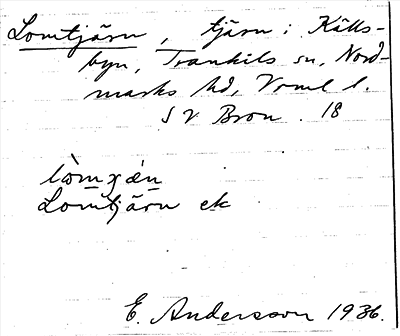 Lomtjärn, tjärn i Källs-
byn, Trankils sn, Nord-
marks hd, Vrml l.
SV Bron. 18
Lomtjärn ek
E. Andersson 1936.